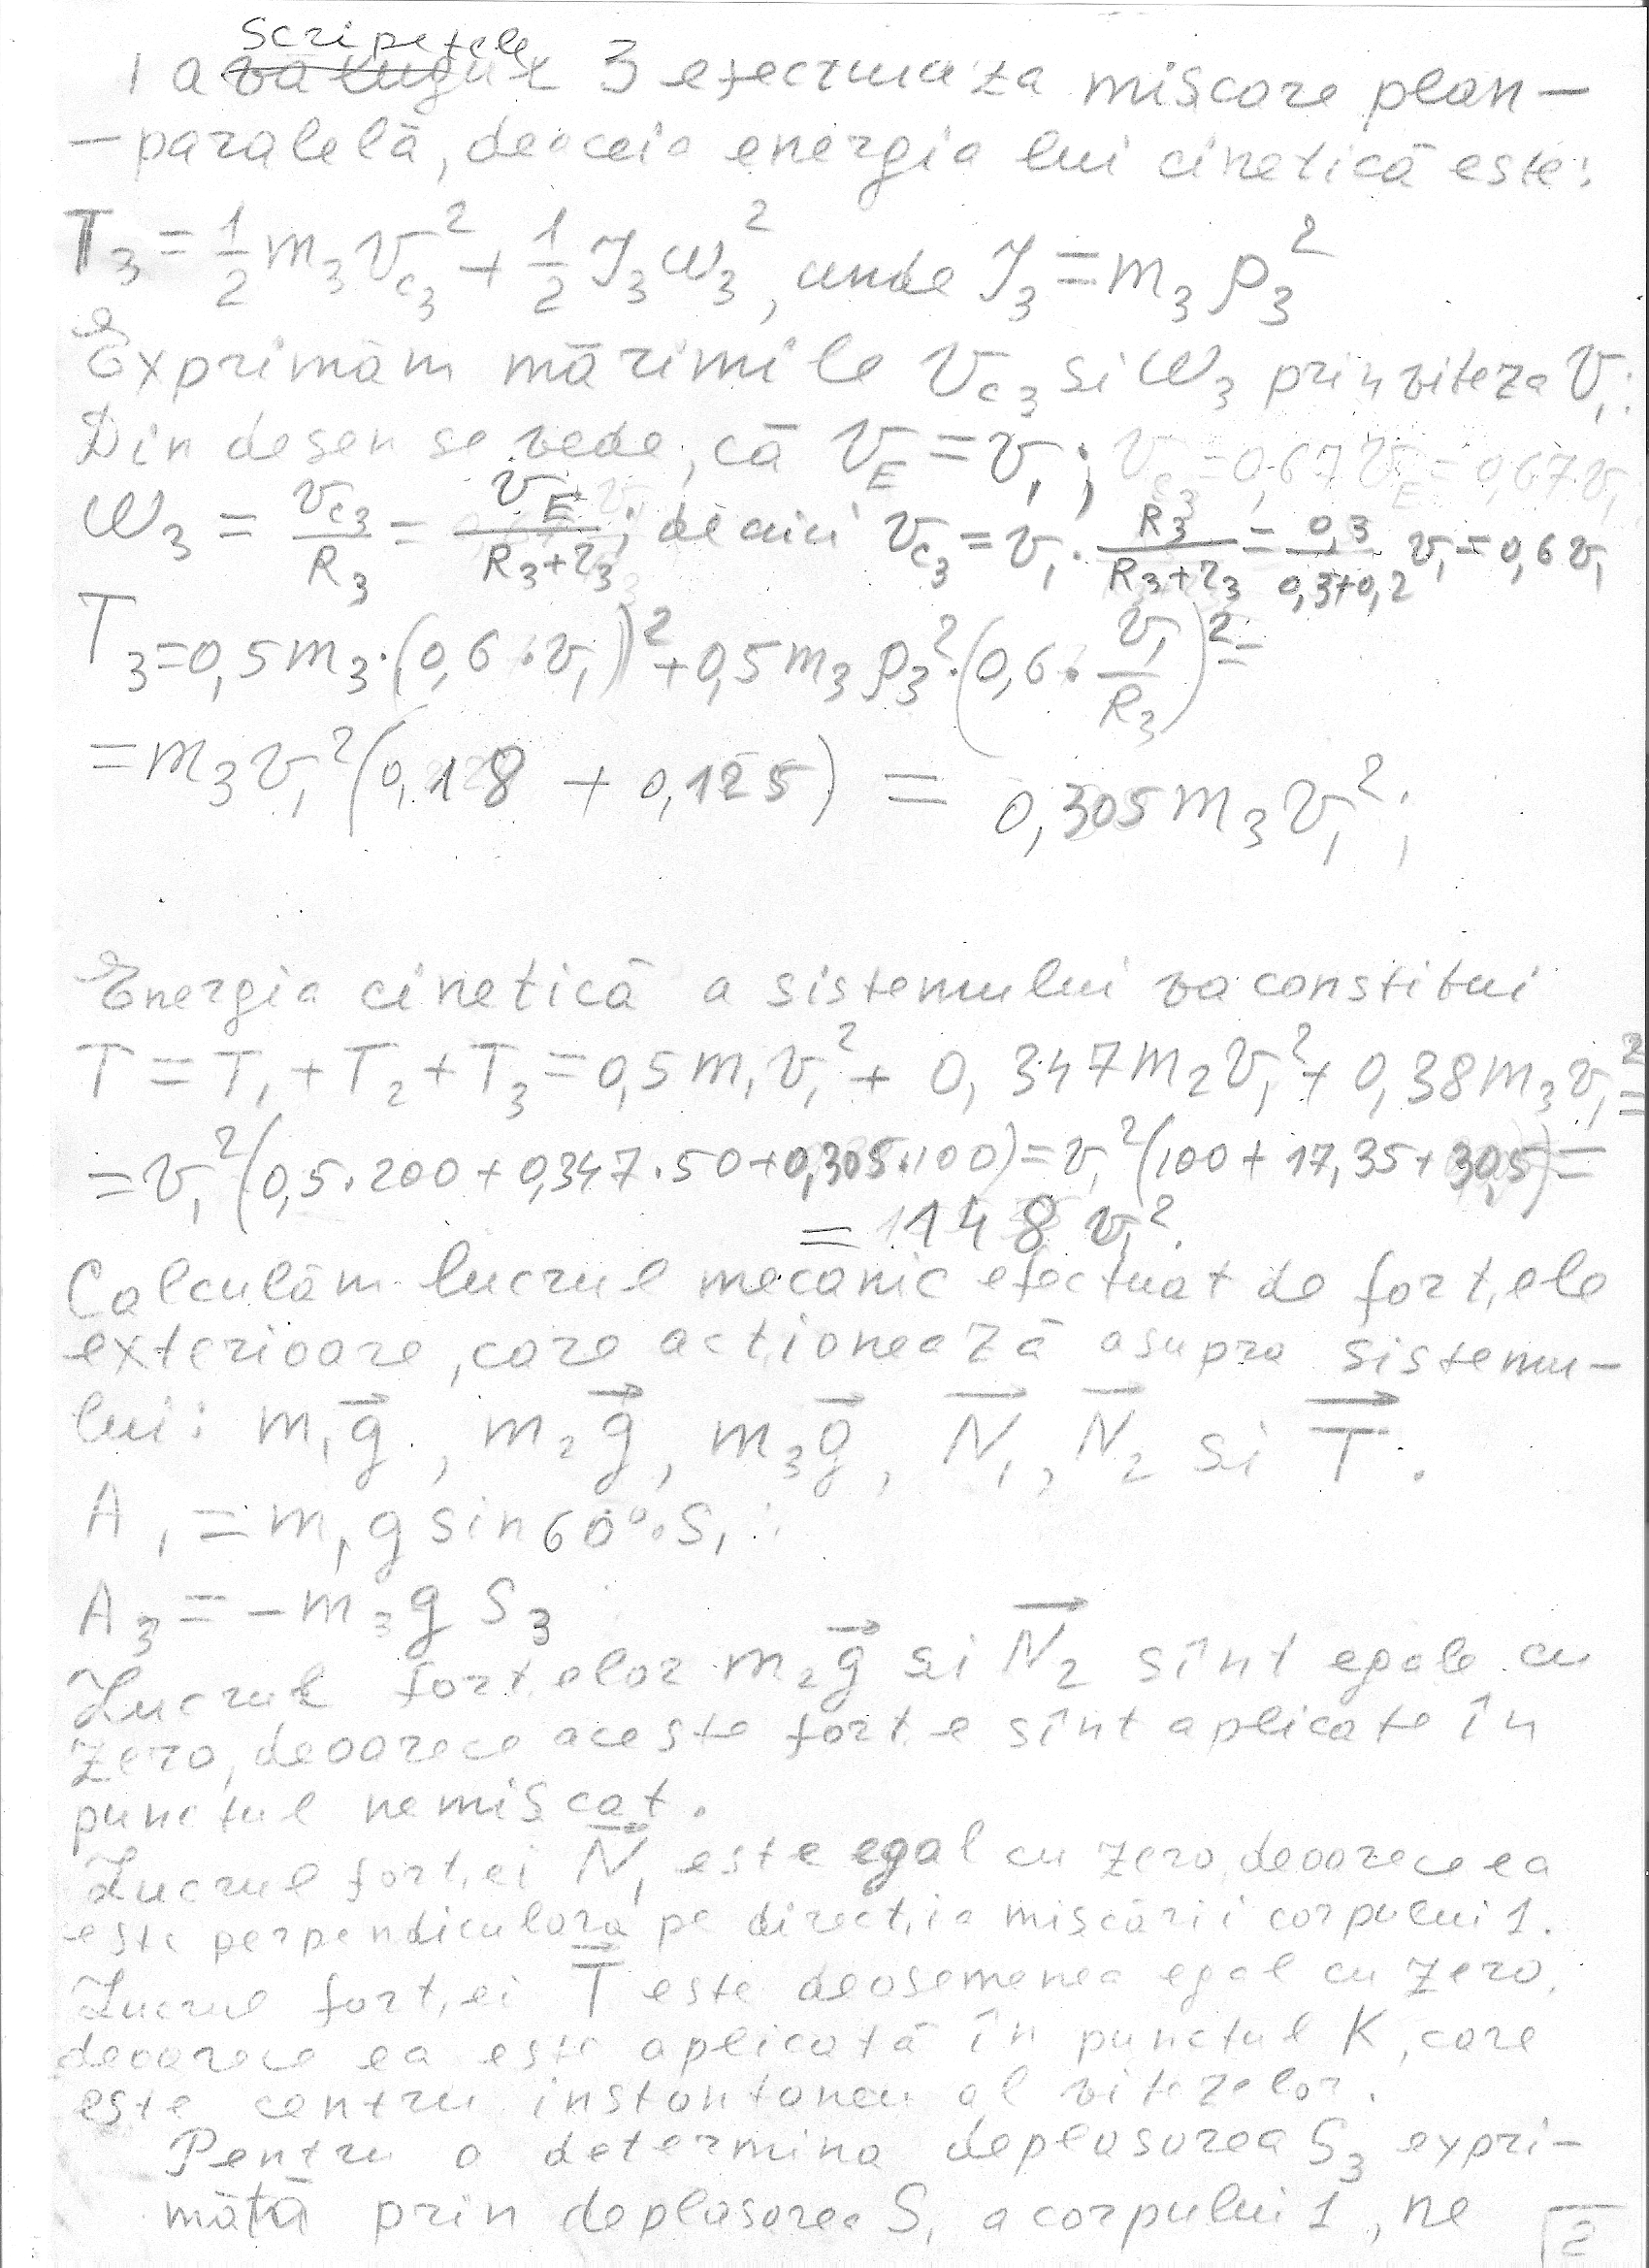 scripetele
3 efectuează mișcare plan-
-paralelă, deaceia energia lui cinetică este:
T₃ = 1/2 m₃ v_c₃² + 1/2 J₃ ω₃², unde J₃ = m₃ ρ₃²
Exprimăm mărimile v_c₃ si ω₃ prin viteza v₁:
Din desen se vede, că v_E = v₁; v_c₃ = 0,67 v_E = 0,67 v₁
ω₃ = v_c₃/R₃ = v_E/(R₃+r₃); de aici v_c₃ = v₁ · R₃/(R₃+r₃) = 0,3/(0,3+0,2) v₁ = 0,6 v₁
T₃ = 0,5 m₃ · (0,6 · v₁)² + 0,5 m₃ ρ₃² · (0,6 · v₁/R₃)² =
= m₃ v₁² (0,18 + 0,125) = 0,305 m₃ v₁²;
Energia cinetică a sistemului va constitui
T = T₁ + T₂ + T₃ = 0,5 m₁ v₁² + 0,347 m₂ v₁² + 0,38 m₃ v₁² =
= v₁² (0,5 · 200 + 0,347 · 50 + 0,305 · 100) = v₁² (100 + 17,35 + 30,5) =
= 148 v₁².
Calculăm lucrul mecanic efectuat de forțele
exterioare, care acționează asupra sistemu-
lui: m₁g⃗, m₂g⃗, m₃g⃗, N⃗₁, N⃗₂ si T⃗.
A₁ = m₁ g sin 60° · S₁;
A₃ = - m₃ g S₃
Lucrul forțelor m₂g⃗ si N⃗₂ sînt egale cu
zero, deoarece aceste forțe sînt aplicate în
punctul nemișcat.
Lucrul forței N⃗₁ este egal cu zero, deoarece ea
este perpendiculară pe direcția mișcării corpului 1.
Lucrul forței T⃗ este deosemenea egal cu zero,
deoarece ea este aplicată în punctul K, care
este centru instantaneu al vitezelor.
Pentru a determina deplasarea S₃ expri-
mată prin deplasarea S₁ a corpului 1, ne
2